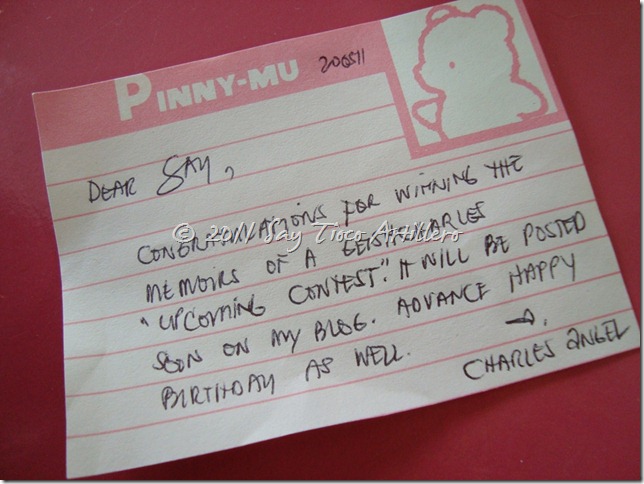 PINNY-MU 200511
DEAR SAY,
CONGRATULATIONS FOR WINNING THE
MEMOIRS OF A GEISHACHARLES
© 2011 Say Tioco Artillero
"UPCOMING CONTEST." IT WILL BE POSTED
SOON ON MY BLOG. ADVANCE HAPPY
BIRTHDAY AS WELL.
CHARLES ANGEL